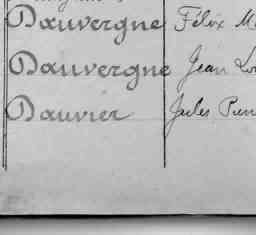 Dauvergne Félix
Dauvergne Jean
Dauvier Jules